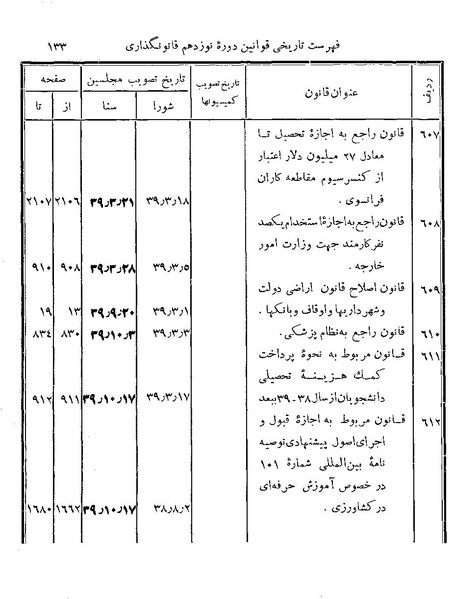 فهرست تاریخی قوانین دورهٔ نوزدهم قانونگذاری ۱۳۳
ردیف عنوان قانون تاریخ تصویب کمیسیونها تاریخ تصویب مجلسین صفحه
شورا سنا از تا
۶۰۷ قانون راجع به اجازهٔ تحصیل تـا
معادل ۲۷ میلیون دلار اعتبار
از کنسرسیوم مقاطعه کاران
فرانسوی . ۳۹٫۳٫۱۸ ۳۹٫۳٫۲۱ ۲۱۰۶ ۲۱۰۷
۶۰۸ قانون راجع به اجازهٔ استخدام یکصد
نفر کارمند جهت وزارت امور
خارجه . ۳۹٫۳٫۵ ۳۹٫۳٫۲۸ ۹۰۸ ۹۱۰
۶۰۹ قانون اصلاح قانون اراضی دولت
وشهرداریها و اوقاف و بانکها . ۳۹٫۳٫۱ ۳۹٫۹٫۲۰ ۱۳ ۱۹
۶۱۰ قانون راجع به نظام پزشکی . ۳۹٫۳٫۳ ۳۹٫۱۰٫۳ ۸۳۰ ۸۳۴
۶۱۱ قـانون مربوط به نحوهٔ پرداخت
کمـك هـزیـنـهٔ تحصیلی
دانشجویان از سال ۳۸-۳۹ ببعد ۳۹٫۳٫۱۷ ۳۹٫۱۰٫۱۷ ۹۱۱ ۹۱۲
۶۱۲ قـانون مربوط به اجازهٔ قبول و
اجرای اصول پیشنهادی توصیه
نامهٔ بین‌المللی شمارهٔ ۱۰۱
در خصوص آموزش حرفه‌ای
در کشاورزی . ۳۸٫۸٫۲ ۳۹٫۱۰٫۱۷ ۱۶۶۲ ۱۶۸۰